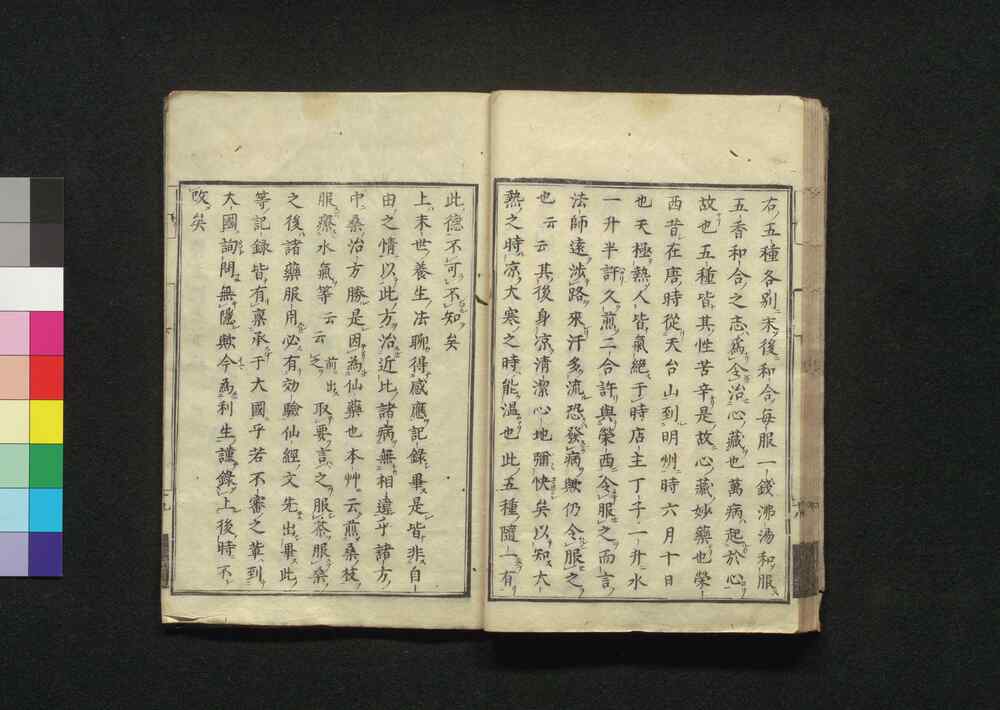 右五種各別末後和合每服一錢沸湯和服
五香和合之志為令治心藏也萬病起於心
故也五種皆其性苦辛是故心藏妙藥也榮
西昔在唐時從天台山到明州時六月十日
也天極熱人皆氣絕于時店主丁子一升水
一升半許久煎二合許與榮西令服之而言
法師遠涉路來汗多流恐發病歟仍令服之
也云云其後身涼清潔心地彌快矣以知大
熱之時涼大寒之時能溫也此五種隨一有
此德不可不知矣
上末世養生法聊得感應記録畢是皆非自
由之情以此方治近比諸病無相違乎諸方
中桑治方勝是因為仙藥也本艸云煎桑枝
服療水氣等云云前出之取要言之服茶服桑
之後諸藥服用必有効驗仙經文先出畢此
等記録皆有稟承于大國乎若不審之輩到
大國詢問無隱歟今為利生謹錄上後時不
改矣